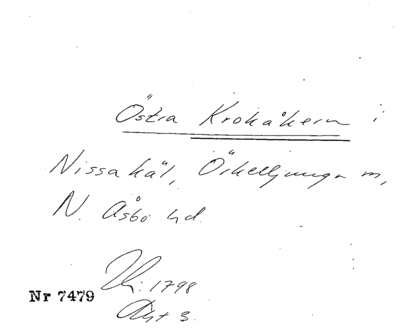 Östra Krokåkern i
Nissakäl, Örkelljunga m,
N. Åsbo hd.
: 1798
Akt 3.
Nr 7479